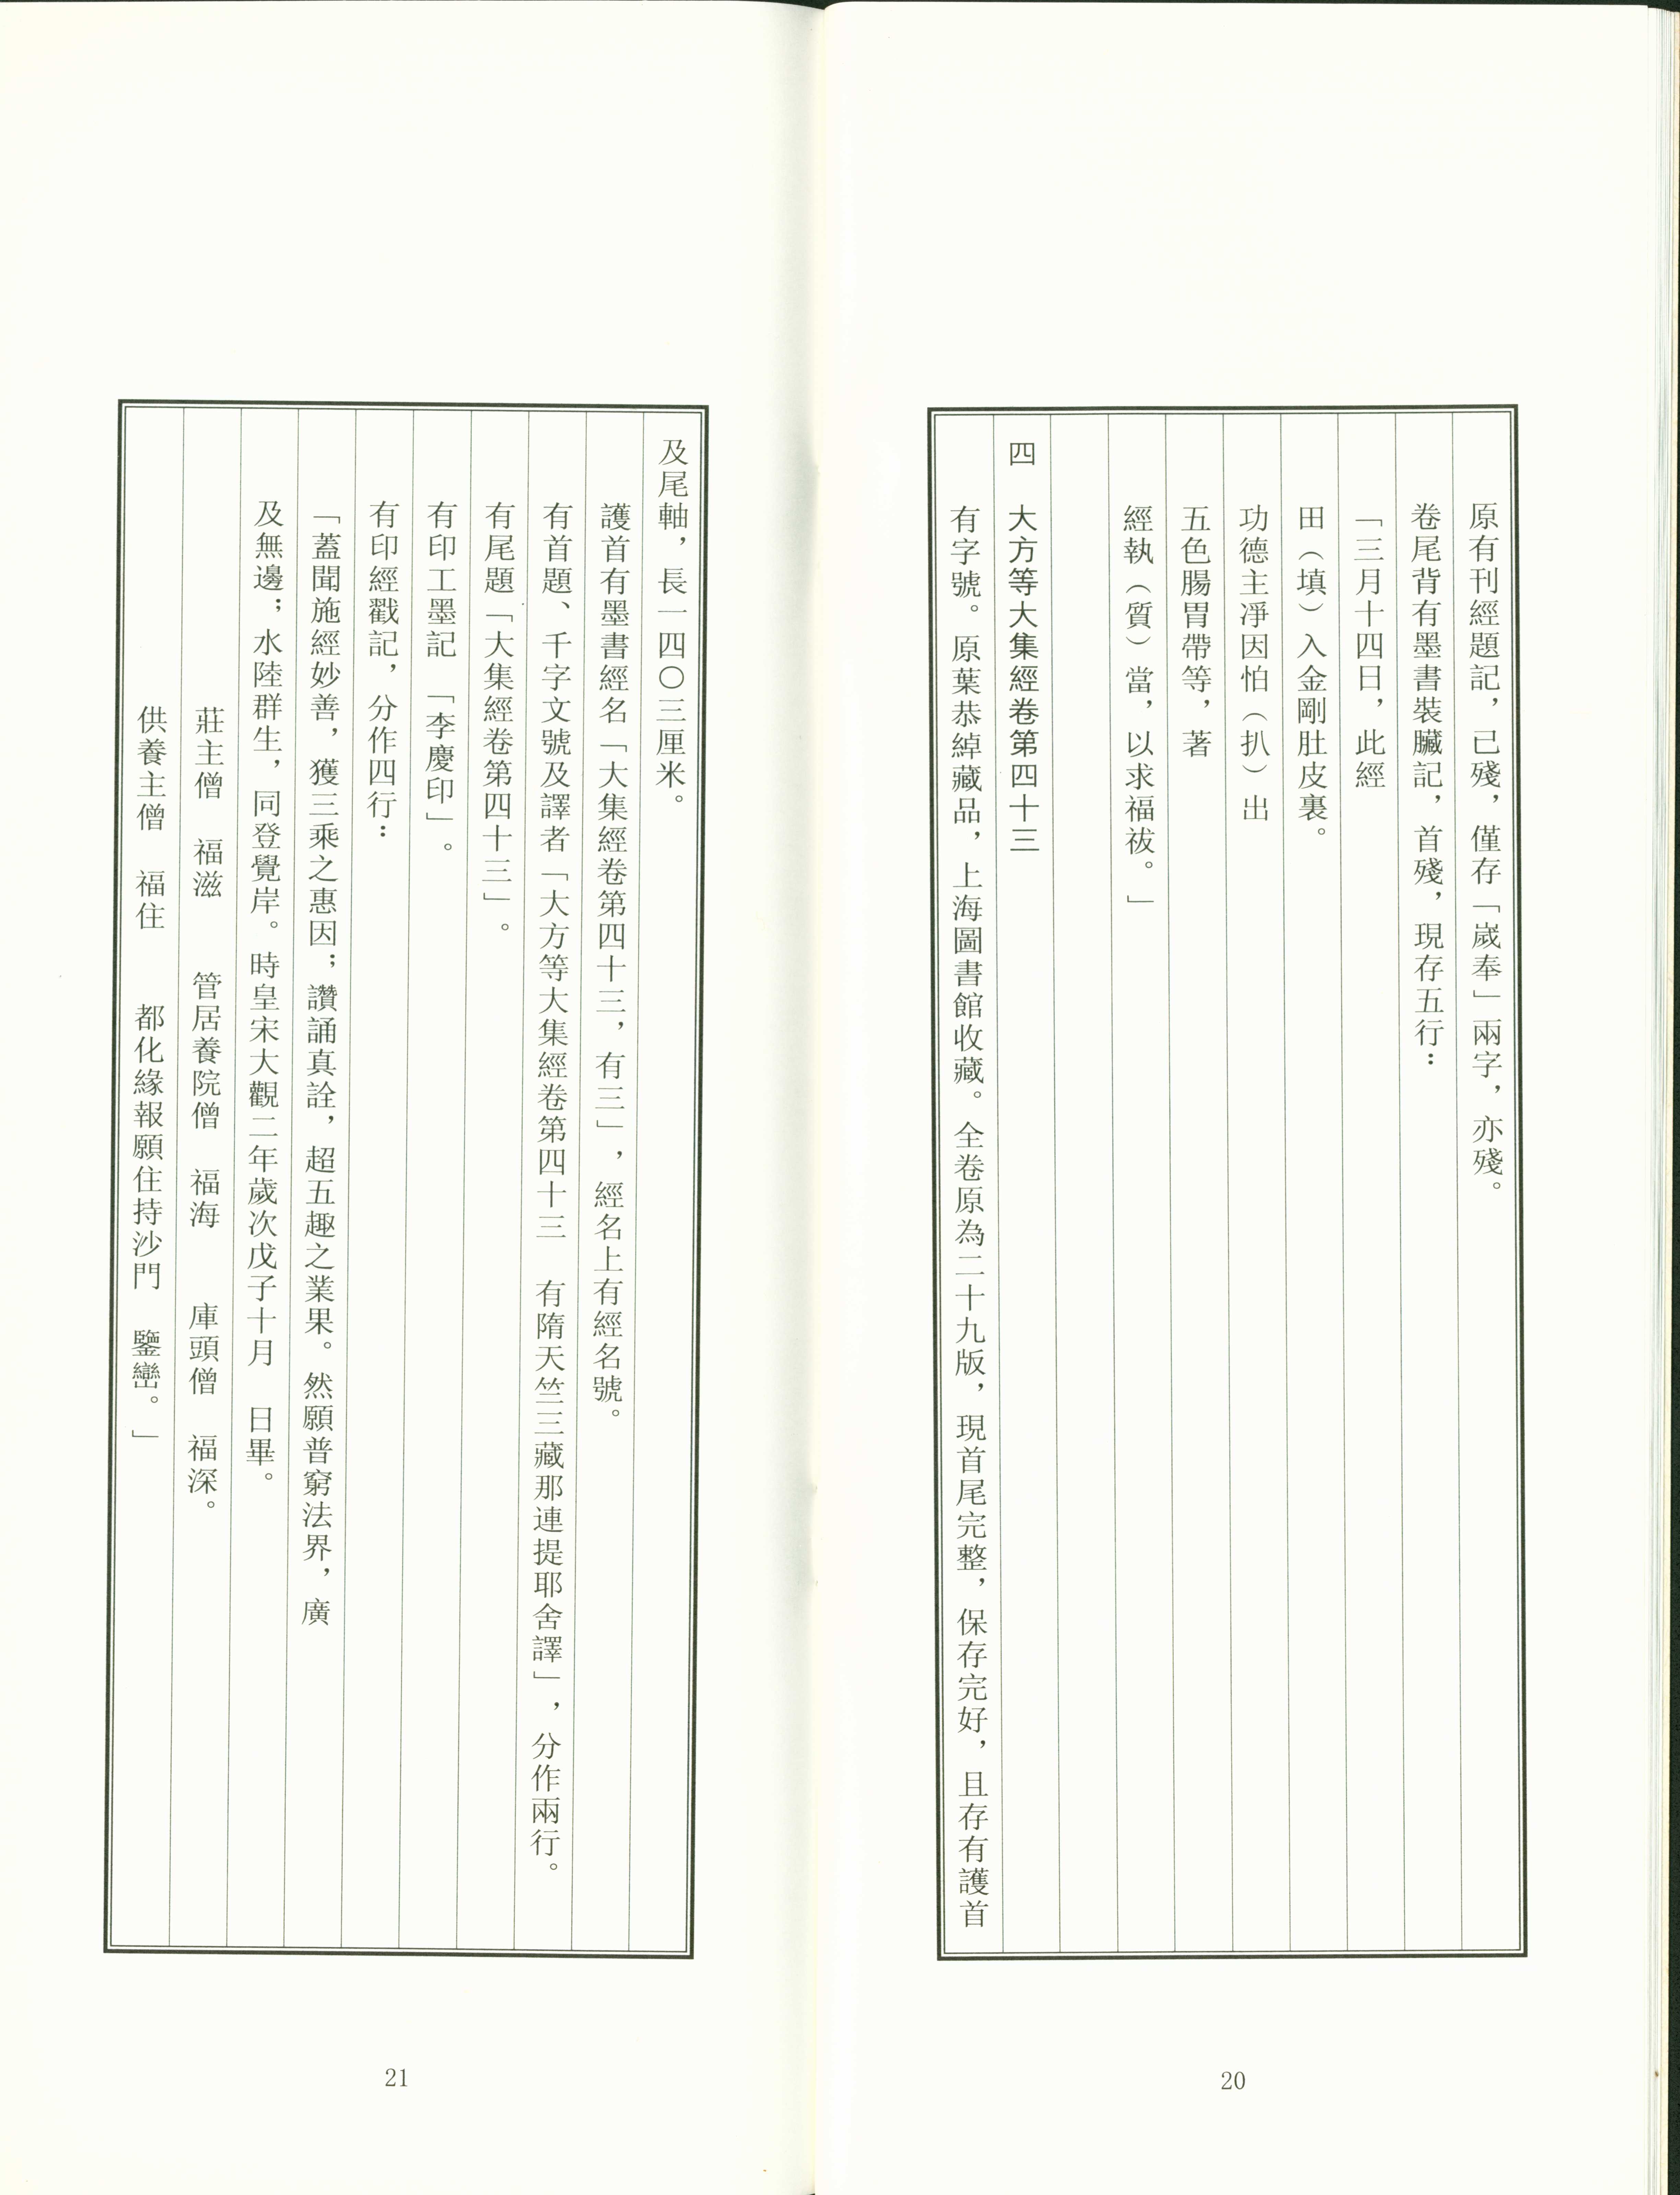 原有刊經題記，已殘，僅存「嵗奉」兩字，亦殘。
卷尾背有墨書裝臟記，首殘，現存五行：
「三月十四日，此經
田（填）入金剛肚皮裏。
功德主凈因怕（扒）出
五色腸胃帶等，著
經執（質）當，以求福祓。」
四　大方等大集經卷第四十三
有字號。原葉恭綽藏品，上海圖書館收藏。全卷原為二十九版，現首尾完整，保存完好，且存有護首
20
及尾軸，長一四〇三厘米。
護首有墨書經名「大集經卷第四十三，有三」，經名上有經名號。
有首題、千字文號及譯者「大方等大集經卷第四十三　有隋天竺三藏那連提耶舍譯」，分作兩行。
有尾題「大集經卷第四十三」。
有印工墨記　「李慶印」。
有印經戳記，分作四行：
「蓋聞施經妙善，獲三乘之惠因；讚誦真詮，超五趣之業果。然願普窮法界，廣
及無邊；水陸群生，同登覺岸。時皇宋大觀二年歲次戊子十月　日畢。
莊主僧　福滋　　管居養院僧　福海　　庫頭僧　福深。
供養主僧　福住　　都化緣報願住持沙門　鑒巒。」
21